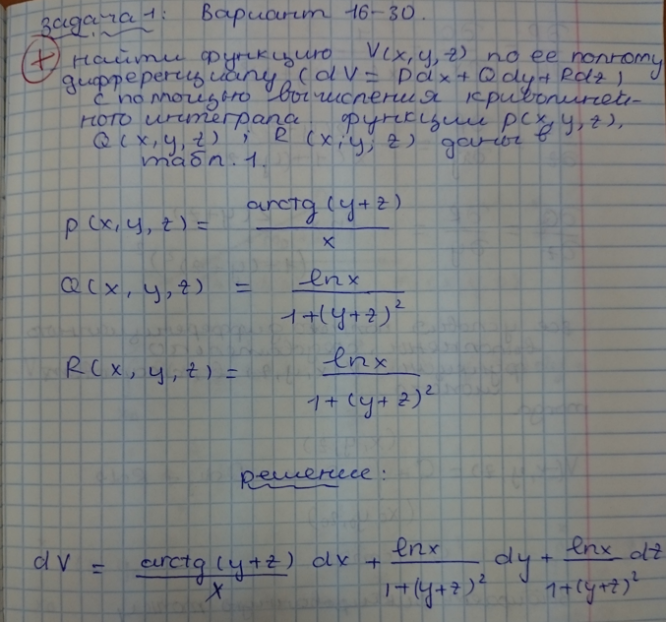 Задача 1: Вариант 16-30.
+ Найти функцию V(x,y,z) по ее полному
дифференциалу (dV = Pdx + Qdy + Rdz)
с помощью вычисления криволиней-
ного интеграла. Функции P(x,y,z),
Q(x,y,z); R(x,y,z) даны в
табл. 1.
P(x,y,z) = arctg(y+z) / x
Q(x,y,z) = lnx / 1+(y+z)²
R(x,y,z) = lnx / 1+(y+z)²
Решение:
dV = arctg(y+z) / x dx + lnx / 1+(y+z)² dy + lnx / 1+(y+z)² dz